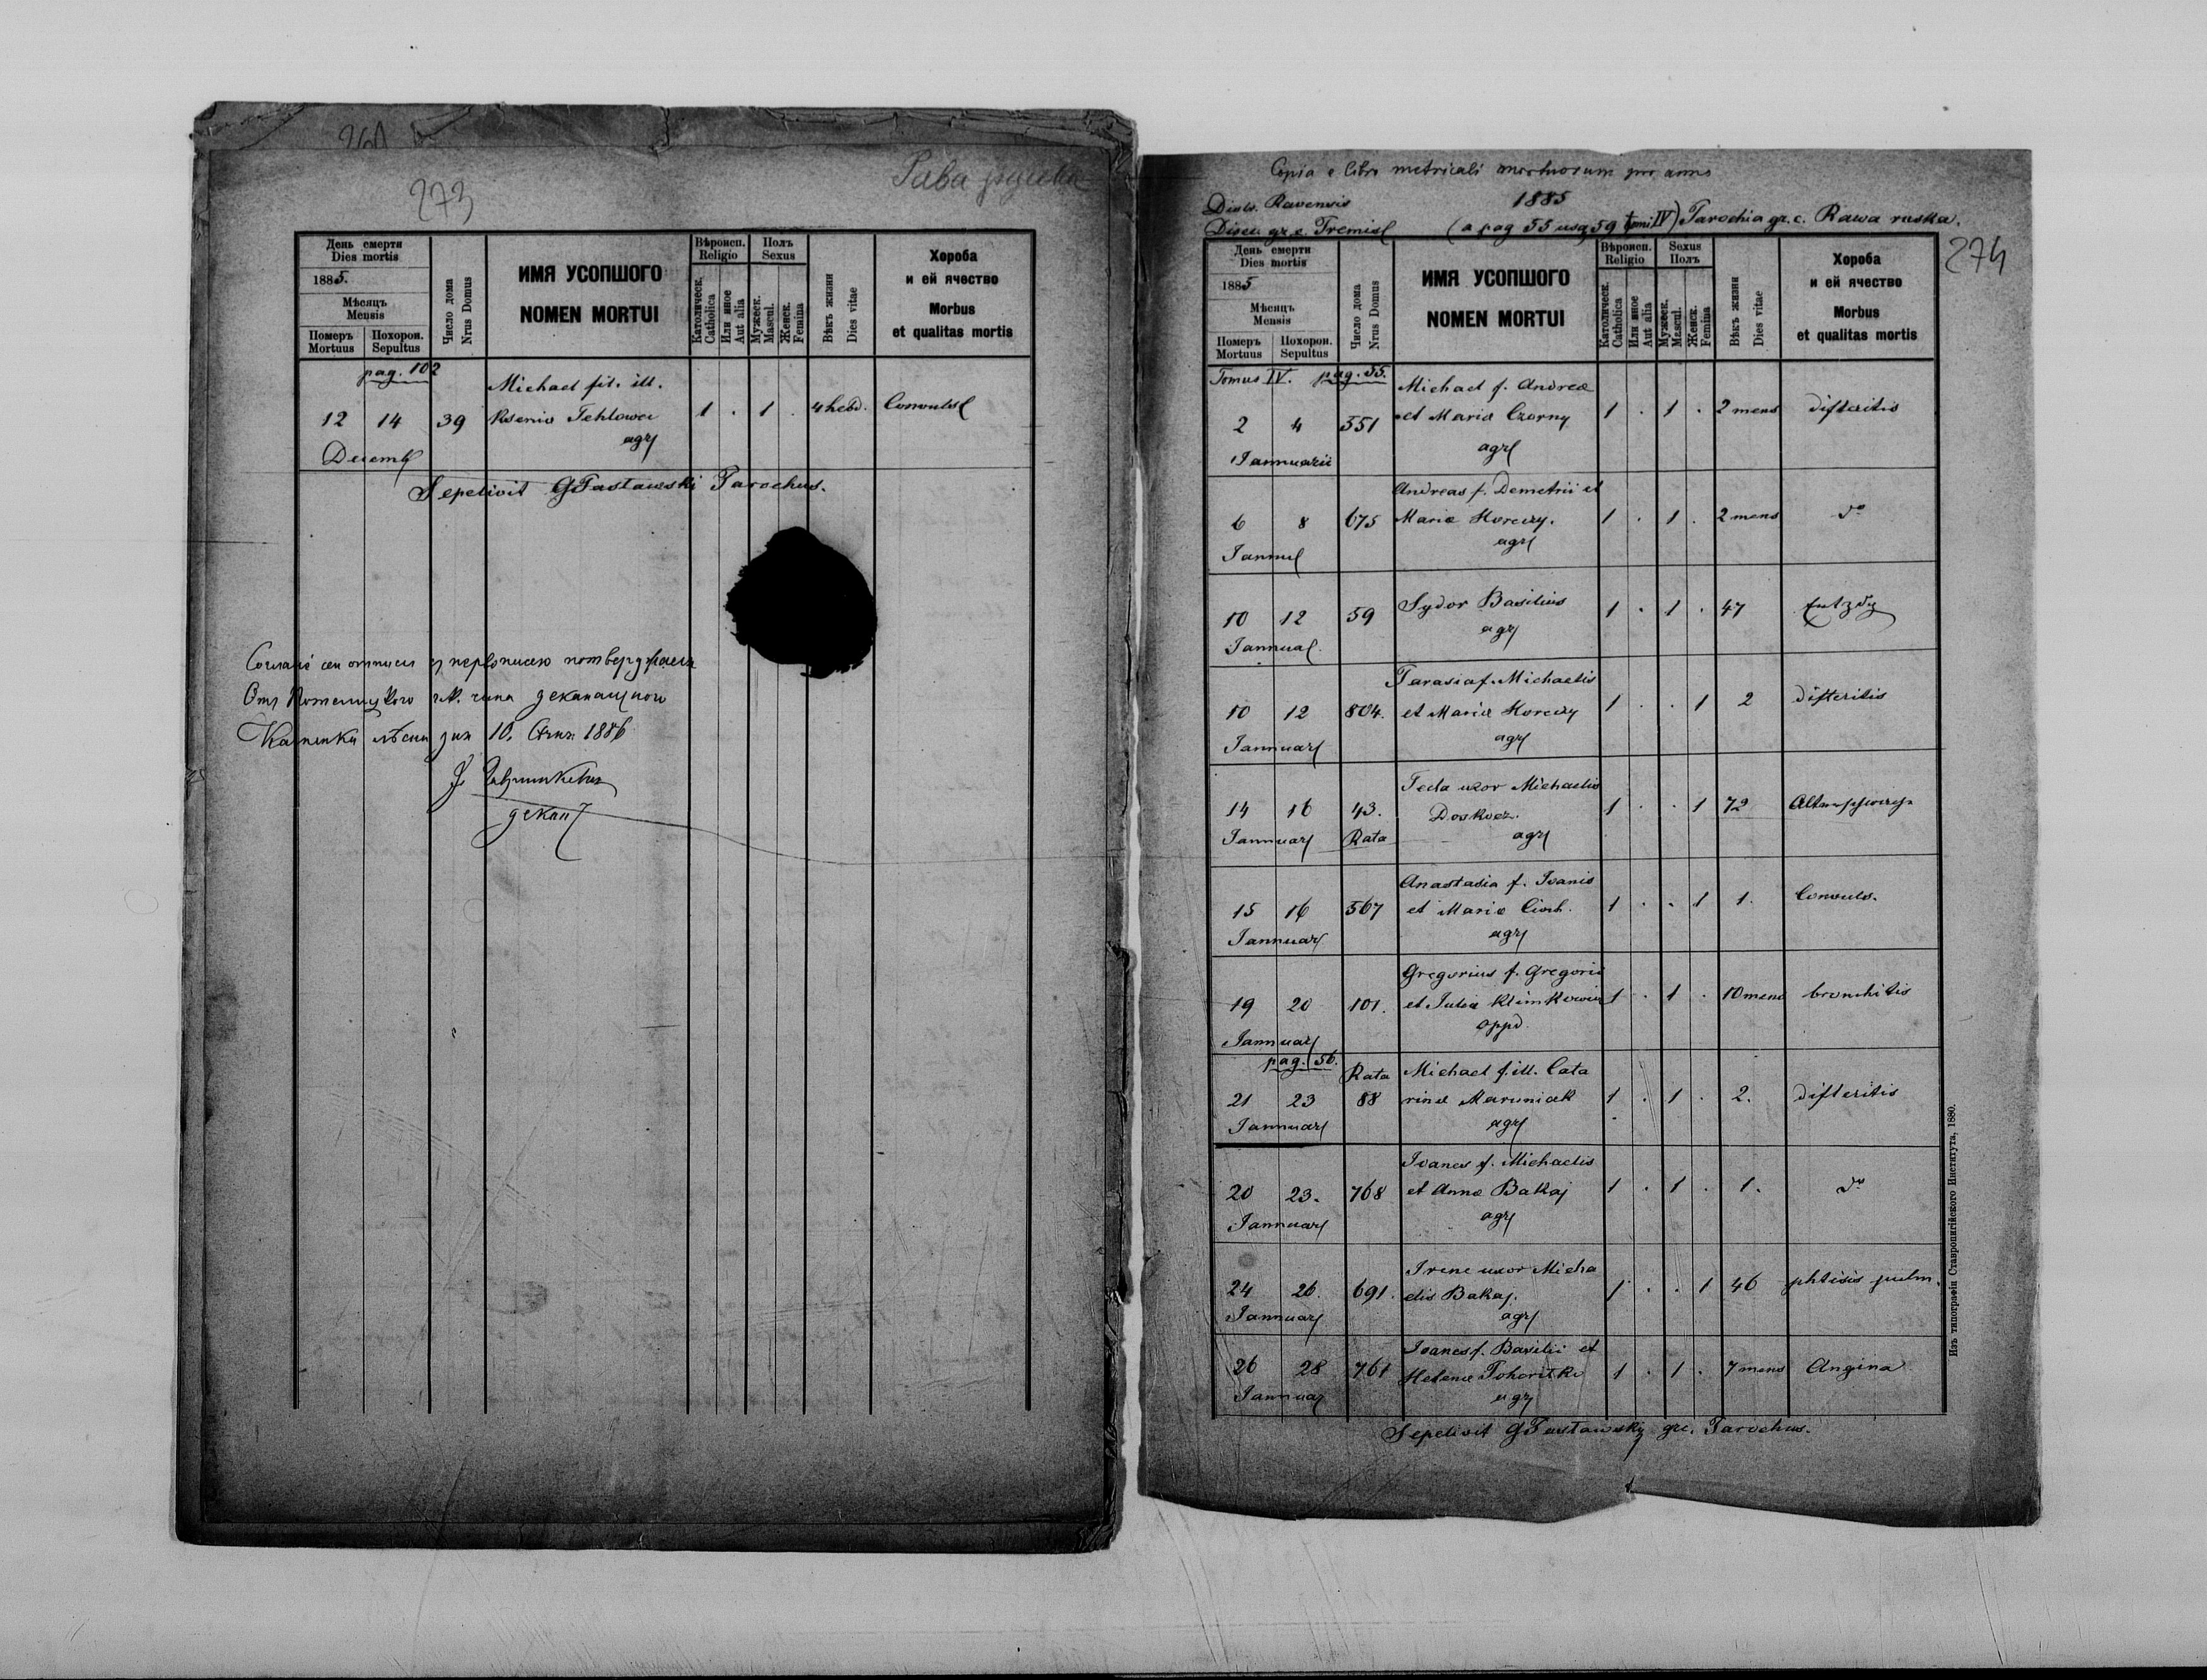 260
273
Рава руска
День смерти
Dies mortis
1885.
Мѣсяцъ
Mensis
Померъ
Mortuus
Похорон.
Sepultus
Число дома
Nrus Domus
ИМЯ УСОПШОГО
NOMEN MORTUI
Вѣроисп.
Religio
Католическ.
Catholica
Или иное
Aut alia
Полъ
Sexus
Мужеск.
Mascul.
Женск.
Femina
Вѣкъ жизни
Dies vitae
Хороба
и ей ячество
Morbus
et qualitas mortis
pag. 102
Michael fil. ill.
12 14 39 Ksenio 1 . 1 . 4 hebd. Convuls
agr
Decemb
Sepelivit GPastawski Parochus.
декан
10. 1886
Copia e libro metricali mortuorum pro anno
1885
Distr. Ravensis
(a pag 55 usq 59 tomi IV) Parochia gr. c. Rawa ruska.
274
День смерти
Dies mortis
1885
Мѣсяцъ
Mensis
Померъ
Mortuus
Похорон.
Sepultus
Число дома
Nrus Domus
ИМЯ УСОПШОГО
NOMEN MORTUI
Вѣроисп.
Religio
Католическ.
Catholica
Или иное
Aut alia
Sexus
Полъ
Мужеск.
Mascul.
Женск.
Femina
Вѣкъ жизни
Dies vitae
Хороба
и ей ячество
Morbus
et qualitas mortis
Tomus IV. pag. 55.
Michael f. Andreæ
2 4 551 et Mariæ Czorny 1 . 1 . 2 mens difteritis
Jannuarii agr
Andreas f. Demetrii et
6 8 675 Mariæ Horczy. 1 . 1 . 2 mens do
Jannu agr
10 12 59 Sydor Basilius 1 . 1 . 47
Jannua agr
Parasia f. Michaelis
10 12 804. et Mariæ Horczy 1 . . 1 2 difteritis
Jannuar agr
Tecla uxor Michaelis
14 16 43. Doskocz. 1 . . 1 72
Jannuar Rata agr
Anastasia f. Ivanis
15 16 567 et Mariæ 1 . . 1 1. Convuls.
Jannuar agr
Gregorius f. Gregorii
19 20 101. et Juliæ 1 . 1 . 10 mens bronchitis
Jannuar oppid.
pag. 56.
Rata Michael f. ill. Cata
21 23 88 rinæ Maruniak 1 . 1 . 2. difteritis
Jannuar agr
Ivanes f. Michaelis
20 23. 768 et Annæ Bakaj 1 . 1 . 1. do
Jannuar agr
Irene uxor Micha
24 26. 691. elis Bakaj. 1 . . 1 46 phtisis pulm.
Jannuar agr
Ivanes f. Basilii et
26 28 761 Helenæ 1 . 1 . 7 mens Angina
Jannuar agr
Sepelivit GPastawsky grc. Parochus.
Изъ типографіи Ставропигійского Института, 1880.